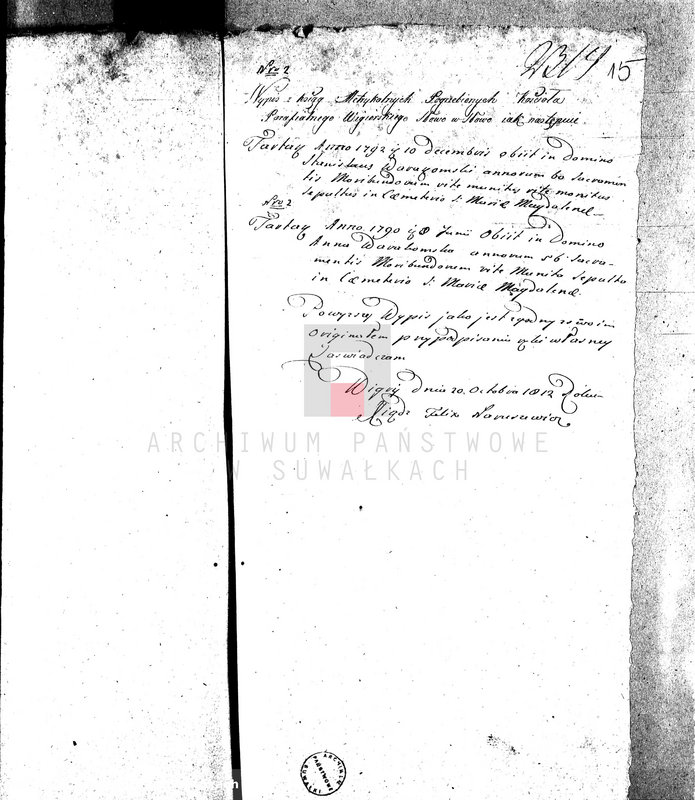 2314 15
Nro 2
Wypis z Xiąg Metrykalnych Pogrzebionych Kościoła
Parafialnego Wigierskiego Słowo w Słowo iak następuie
Tartak Anno 1792 10 decembris obiit in Domino
Stanislaus Warakomski annorum 60 Sacramen
tis Moribundorum rite munitus rite monitus
Sepultus in Cæmeterio S. Mariæ Magdalenæ
Nro 2
Tartak Anno 1790 8 Junii Obiit in Domino
Anna Warakomska annorum 56 Sacra-
mentis Moribundorum rite Munita Sepulta
in Cæmeterio S. Mariæ Magdalenæ
Powyższy Wypis jako jest zgodny z swoim
Originałem przy podpisaniu ręki własney
Zaświadczam
Wigry dnia 20 Octobra 1812 Roku
Xiądz Felix
ARCHIWUM PAŃSTWOWE
W SUWAŁKACH